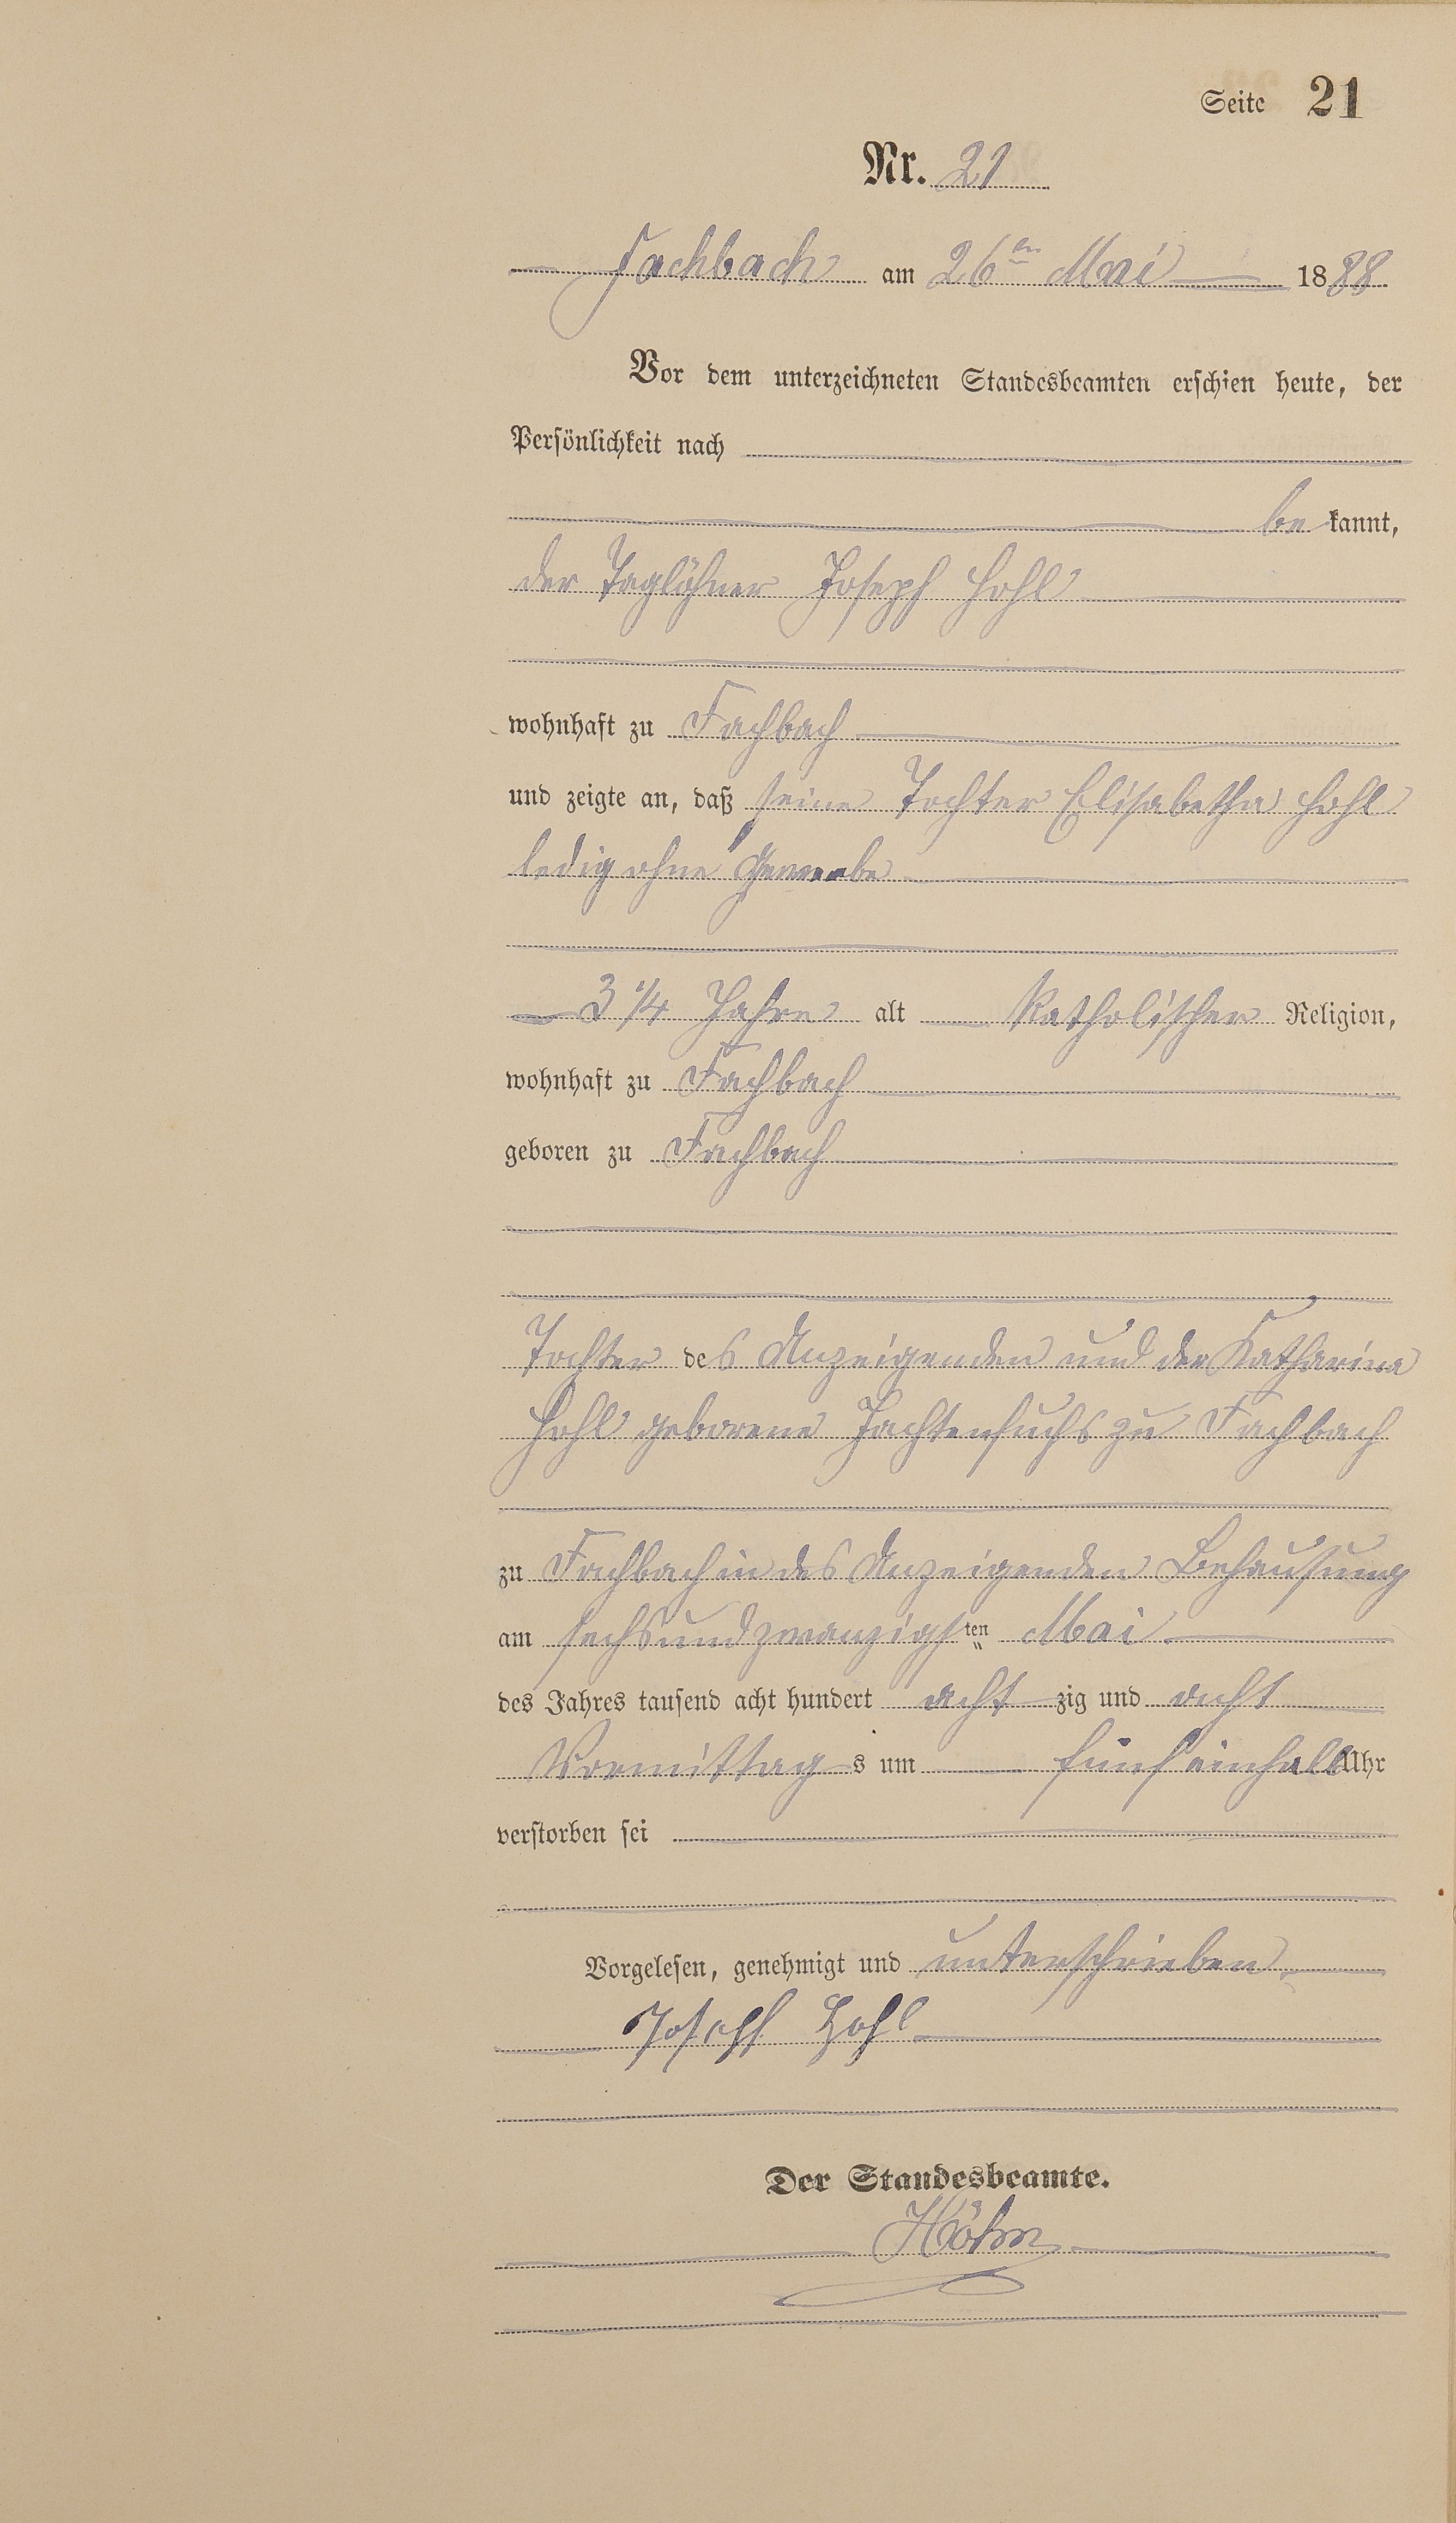 Seite 21
Nr. 21
Fachbach am 26ten Mai 1888
Vor dem unterzeichneten Standesbeamten erschien heute, der
Persönlichkeit nach
be kannt,
der Taglöhner Joseph Hohl
wohnhaft zu Fachbach
und zeigte an, daß seine Tochter Elisabetha Hohl
ledig ohne Gewerbe
3 1/4 Jahre alt Katholischer Religion,
wohnhaft zu Fachbach
geboren zu Fachbach
Tochter des Anzeigenden und der Katharina
Hohl geborene Fachtenfuchs zu Fachbach
zu Fachbach in des Anzeigenden Behausung
am sechsundzwanzigsten Mai
des Jahres tausend acht hundert acht zig und acht
Vormittags um fünf einhalb Uhr
verstorben sei
Vorgelesen, genehmigt und unterschrieben
Joseph Hohl
Der Standesbeamte.
Höhn